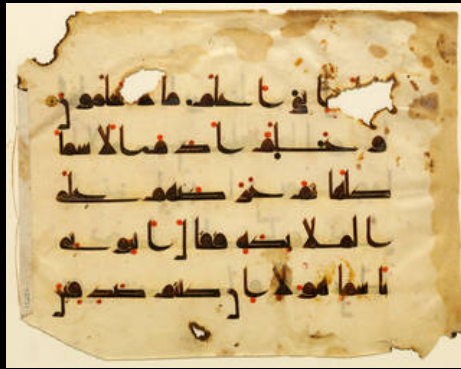 انى اعلم ما لا تعلمون
و علم ادم الاسما
كلها ثم عرضهم على
الملئكه فقال انبونى
باسما هولا ان كنتم صدقين